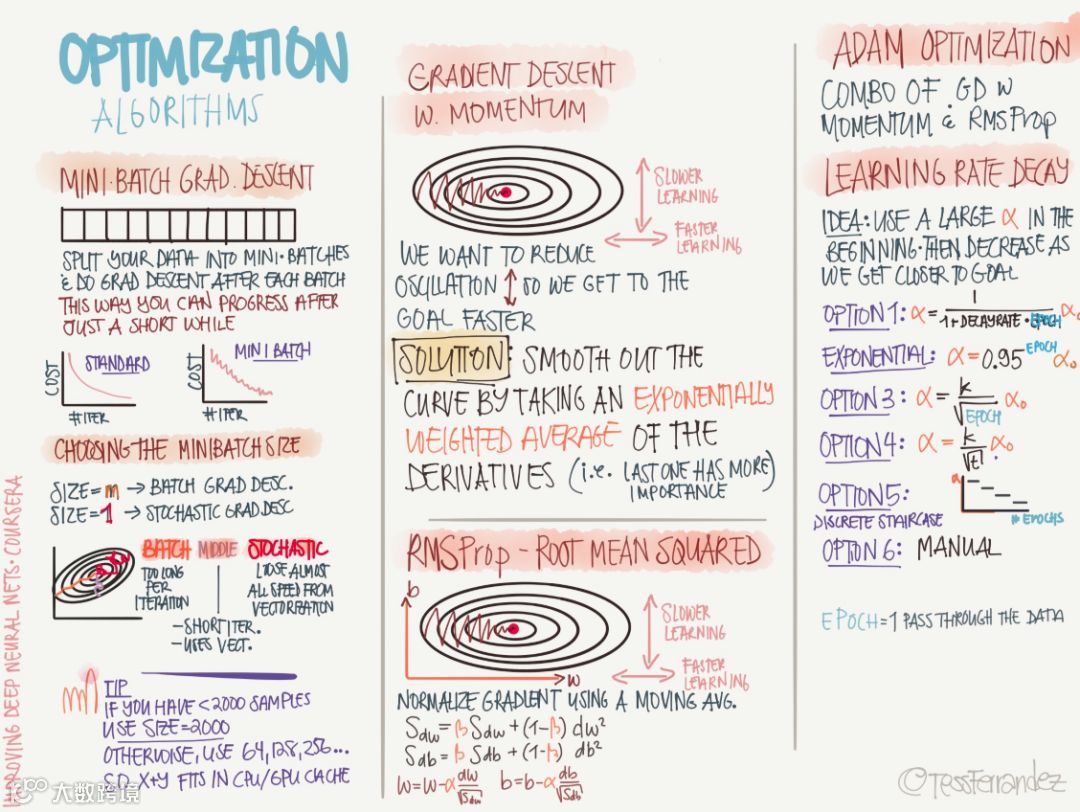 OPTIMIZATION
ALGORITHMS
MINI-BATCH GRAD. DESCENT
SPLIT YOUR DATA INTO MINI-BATCHES
& DO GRAD DESCENT AFTER EACH BATCH
THIS WAY YOU CAN PROGRESS AFTER
JUST A SHORT WHILE
COST
STANDARD
# ITER
COST
MINI BATCH
# ITER
CHOOSING THE MINIBATCH SIZE
SIZE=m → BATCH GRAD DESC.
SIZE=1 → STOCHASTIC GRAD DESC
BATCH
TOO LONG
PER
ITERATION
MIDDLE
STOCHASTIC
LOSE ALMOST
ALL SPEED FROM
VECTORIZATION
-SHORT ITER.
-USES VECT.
TIP
IF YOU HAVE <2000 SAMPLES
USE SIZE=2000
OTHERWISE, USE 64,128,256...
SO X+Y FITS IN CPU/GPU CACHE
IMPROVING DEEP NEURAL NETS · COURSERA
大数跨境
GRADIENT DESCENT
W. MOMENTUM
SLOWER
LEARNING
FASTER
LEARNING
WE WANT TO REDUCE
OSCILLATION ↕ SO WE GET TO THE
GOAL FASTER
SOLUTION: SMOOTH OUT THE
CURVE BY TAKING AN EXPONENTIALLY
WEIGHTED AVERAGE OF THE
DERIVATIVES (i.e. LAST ONE HAS MORE
IMPORTANCE)
RMSProp - ROOT MEAN SQUARED
b
SLOWER
LEARNING
FASTER
LEARNING
W
NORMALIZE GRADIENT USING A MOVING AVG.
Sdw = β Sdw + (1-β) dw²
Sdb = β Sdb + (1-β) db²
W=W-α dw/√Sdw b=b-α db/√Sdb
ADAM OPTIMIZATION
COMBO OF GD W
MOMENTUM & RMSProp
LEARNING RATE DECAY
IDEA: USE A LARGE α IN THE
BEGINNING·THEN DECREASE AS
WE GET CLOSER TO GOAL
OPTION 1: α = 1/(1+DECAYRATE·EPOCH) α₀
EXPONENTIAL: α = 0.95^EPOCH α₀
OPTION 3: α = k/√EPOCH α₀
OPTION 4: α = k/√t · α₀
OPTION 5:
DISCRETE STAIRCASE
α
# EPOCHS
OPTION 6: MANUAL
EPOCH = 1 PASS THROUGH THE DATA
©TessFerrandez